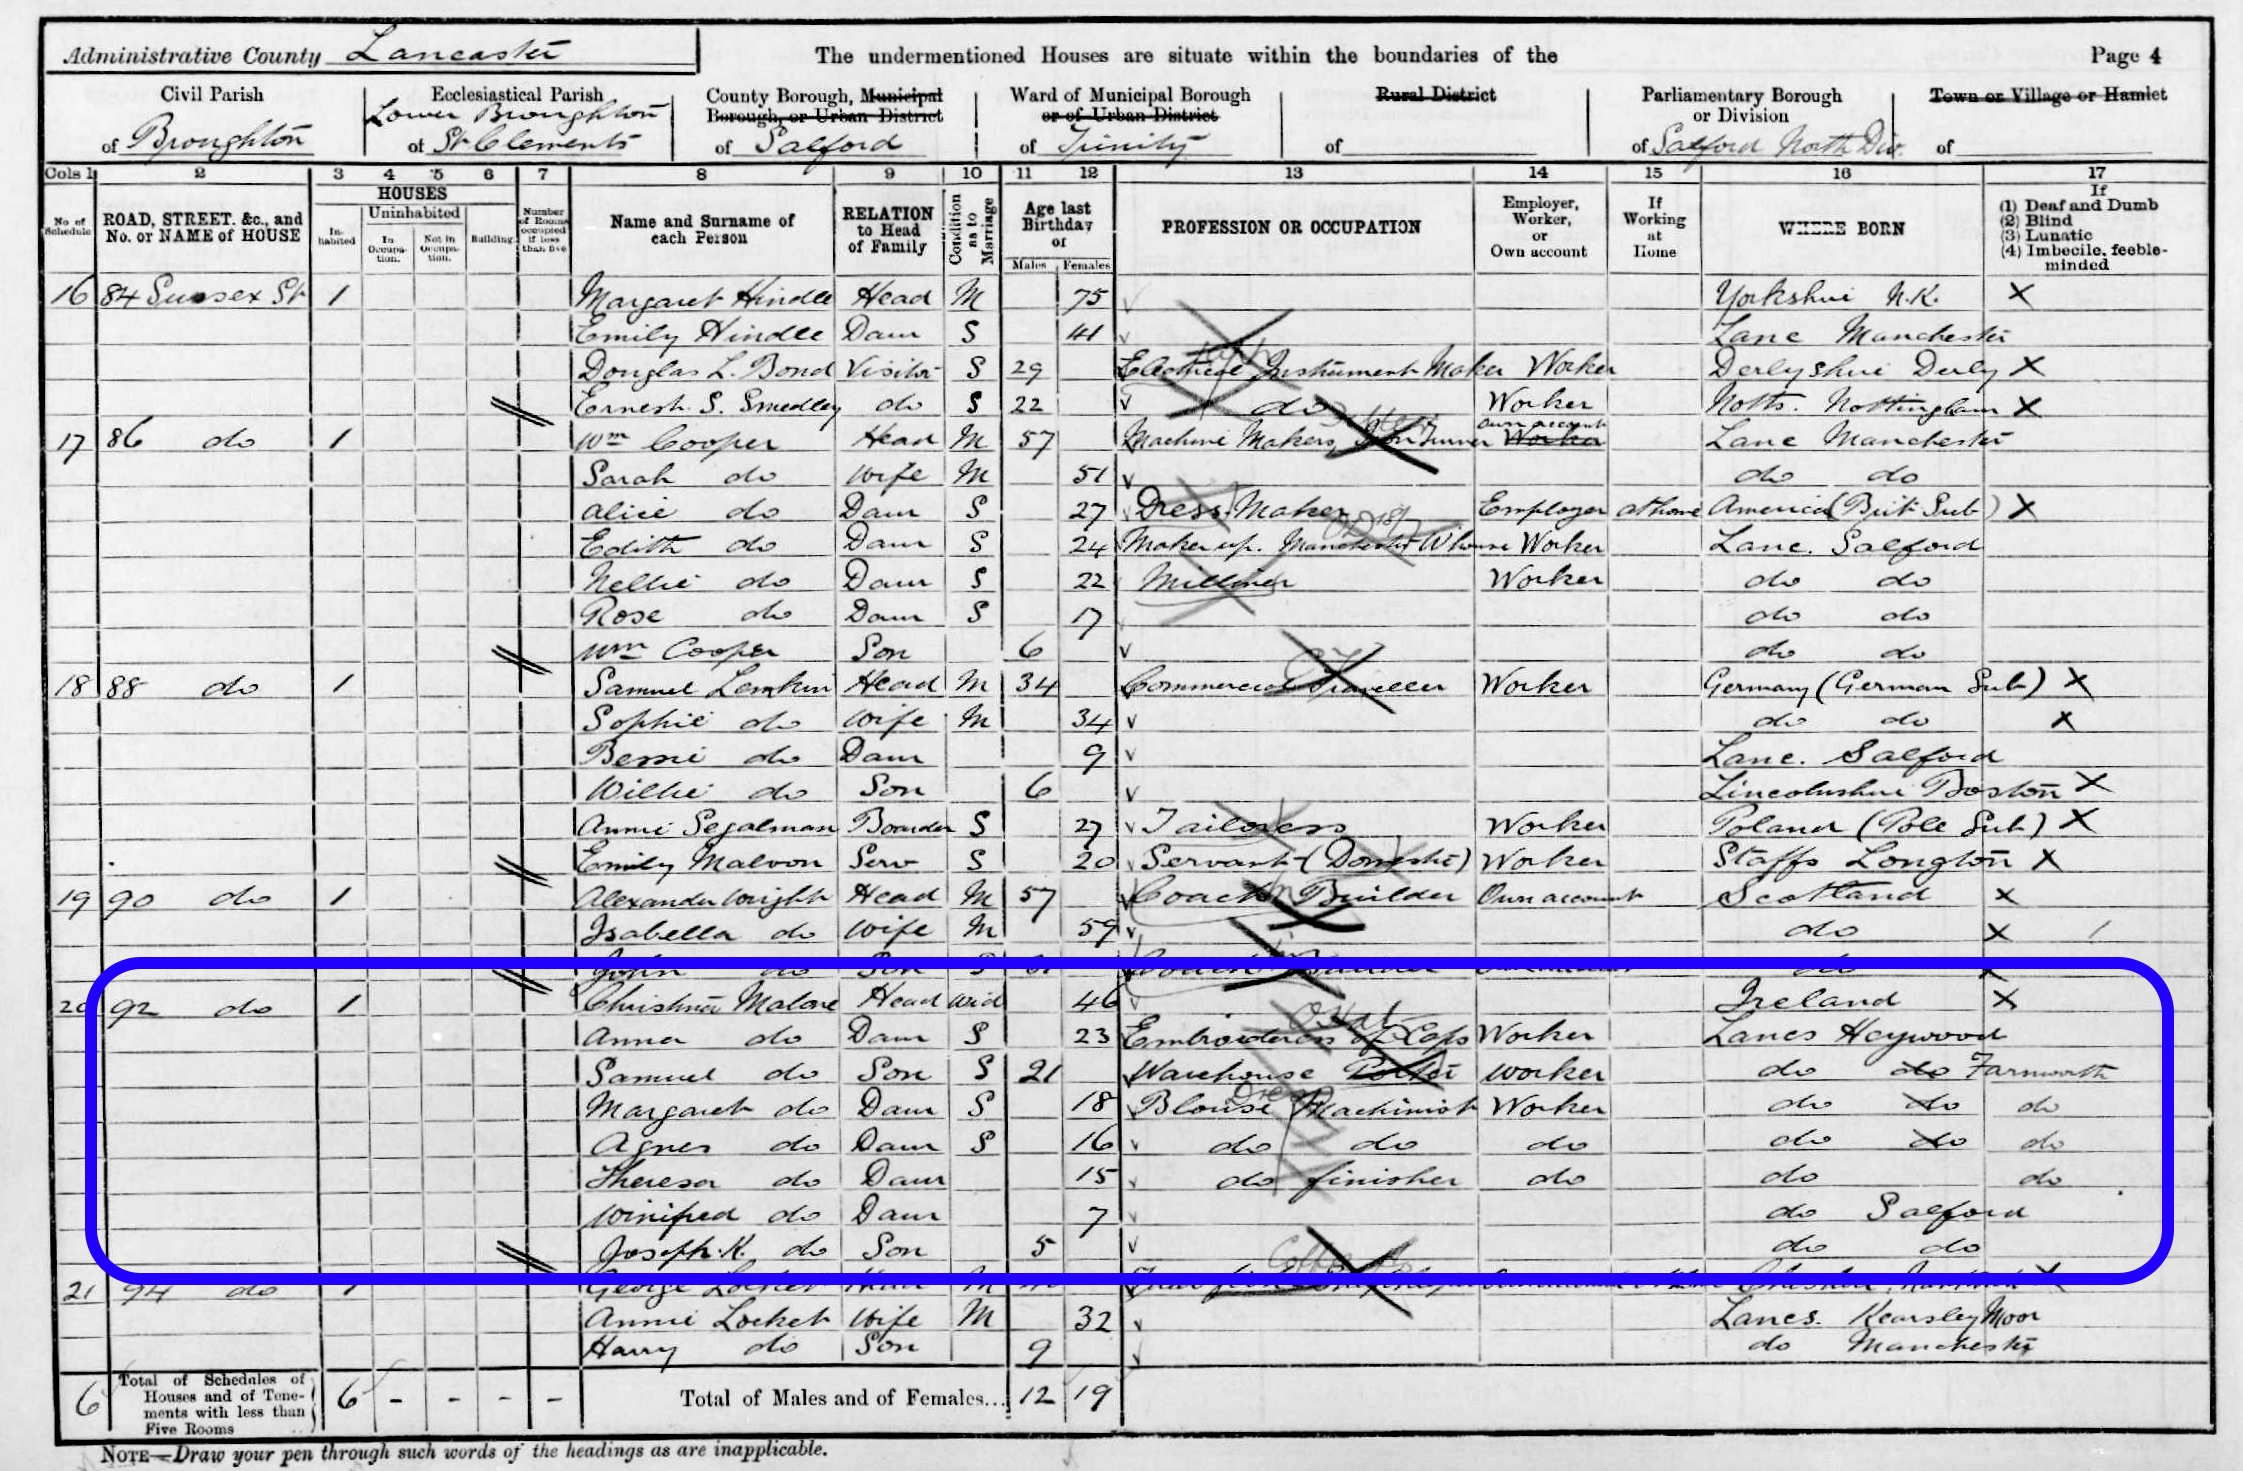 Administrative County Lancaster The undermentioned Houses are situate within the boundaries of the Page 4
Civil Parish Ecclesiastical Parish County Borough, Municipal Ward of Municipal Borough Rural District Parliamentary Borough Town or Village or Hamlet
Lower Broughton Borough, or Urban District or of Urban District or Division
of Broughton of St Clements of Salford of Trinity of of Salford North Div. of
Cols 1 2 3 4 5 6 7 8 9 10 11 12 13 14 15 16 17
No. of Schedule ROAD, STREET. &c., and No. or NAME of HOUSE HOUSES Inhabited Uninhabited In Occupation. Not in Occupation. Building. Number of Rooms occupied if less than five Name and Surname of each Person RELATION to Head of Family Condition as to Marriage Age last Birthday of Males Females PROFESSION OR OCCUPATION Employer, Worker, or Own account If Working at Home WHERE BORN If (1) Deaf and Dumb (2) Blind (3) Lunatic (4) Imbecile, feeble-minded
16 84 Sussex St 1 Margaret Hindle Head M 75 Yorkshire X
Emily Hindle Daur S 41 Lanc Manchester
Douglas L. Bond Visitor S 29 Electrical Instrument Maker Worker Derbyshire Derby X
Ernest S. Smedley do S 22 do Worker Notts. Nottingham X
17 86 do 1 Wm Cooper Head M 57 Machine Makers Iron Turner Own account Worker Lanc Manchester
Sarah do Wife M 51 do do
Alice do Daur S 27 Dress Maker Employer at home America (Brit Sub) X
Edith do Daur S 24 Maker up. Manchester Whouse Worker Lanc. Salford
Nellie do Daur S 22 Milliner Worker do do
Rose do Daur S 17 do do
Wm Cooper Son 6 do do
18 88 do 1 Samuel Lemkin Head M 34 Commercial Traveller Worker Germany (German Sub) X
Sophie do Wife M 34 do do X
Bessie do Daur 9 Lanc. Salford
Willie do Son 6 Lincolnshire Boston X
Annie Segalman Boarder S 27 Tailoress Worker Poland (Pole Sub) X
Emily Malvon Serv S 20 Servant (Domestic) Worker Staffs Longton X
19 90 do 1 Alexander Wright Head M 57 Coach Builder Own account Scotland X
Isabella do Wife M 59 do X
John do Son S Coach do X
20 92 do 1 Christina Malone Head Wid 46 Ireland X
Anna do Daur S 23 Embroideress of Caps Worker Lancs Heywood
Samuel do Son S 21 Warehouse Porter Worker do do Farnworth
Margaret do Daur S 18 Blouse Machinist Worker do do do
Agnes do Daur S 16 do do do do do do
Theresa do Daur 15 do finisher do do do
Winifred do Daur 7 do Salford
Joseph. K. do Son 5 do do
21 94 do 1 George Locket Head M X
Annie Locket Wife M 32 Lancs. Kearsley Moor
Harry do Son 9 do Manchester
6 Total of Schedules of Houses and of Tenements with less than Five Rooms 6 - - - - Total of Males and of Females... 12 19
NOTE—Draw your pen through such words of the headings as are inapplicable.